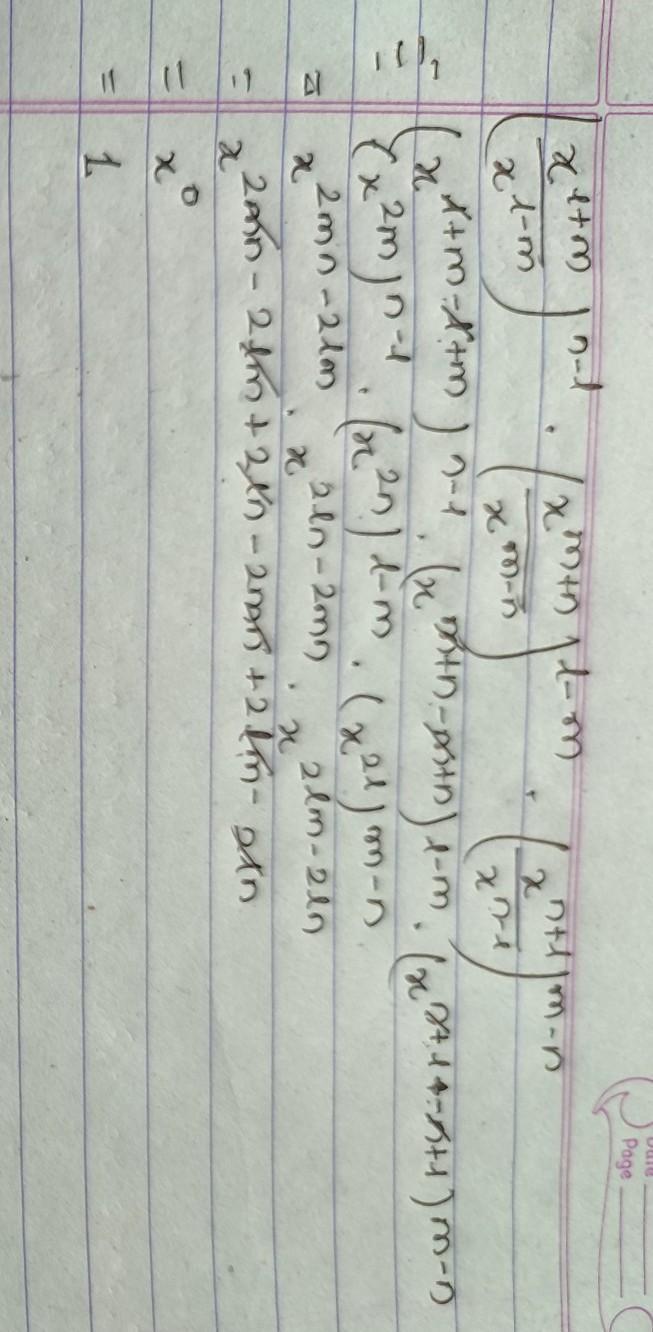 Date
Page
(x^{l+m} / x^{l-m})^{n-l} . (x^{m+n} / x^{m-n})^{l-m} . (x^{n+l} / x^{n-l})^{m-n}
= (x^{l+m-l+m})^{n-l} . (x^{m+n-m+n})^{l-m} . (x^{n+l-n+l})^{m-n}
= (x^{2m})^{n-l} . (x^{2n})^{l-m} . (x^{2l})^{m-n}
= x^{2mn-2lm} . x^{2ln-2mn} . x^{2lm-2ln}
= x^{2mn-2lm+2ln-2mn+2lm-2ln}
= x^0
= 1